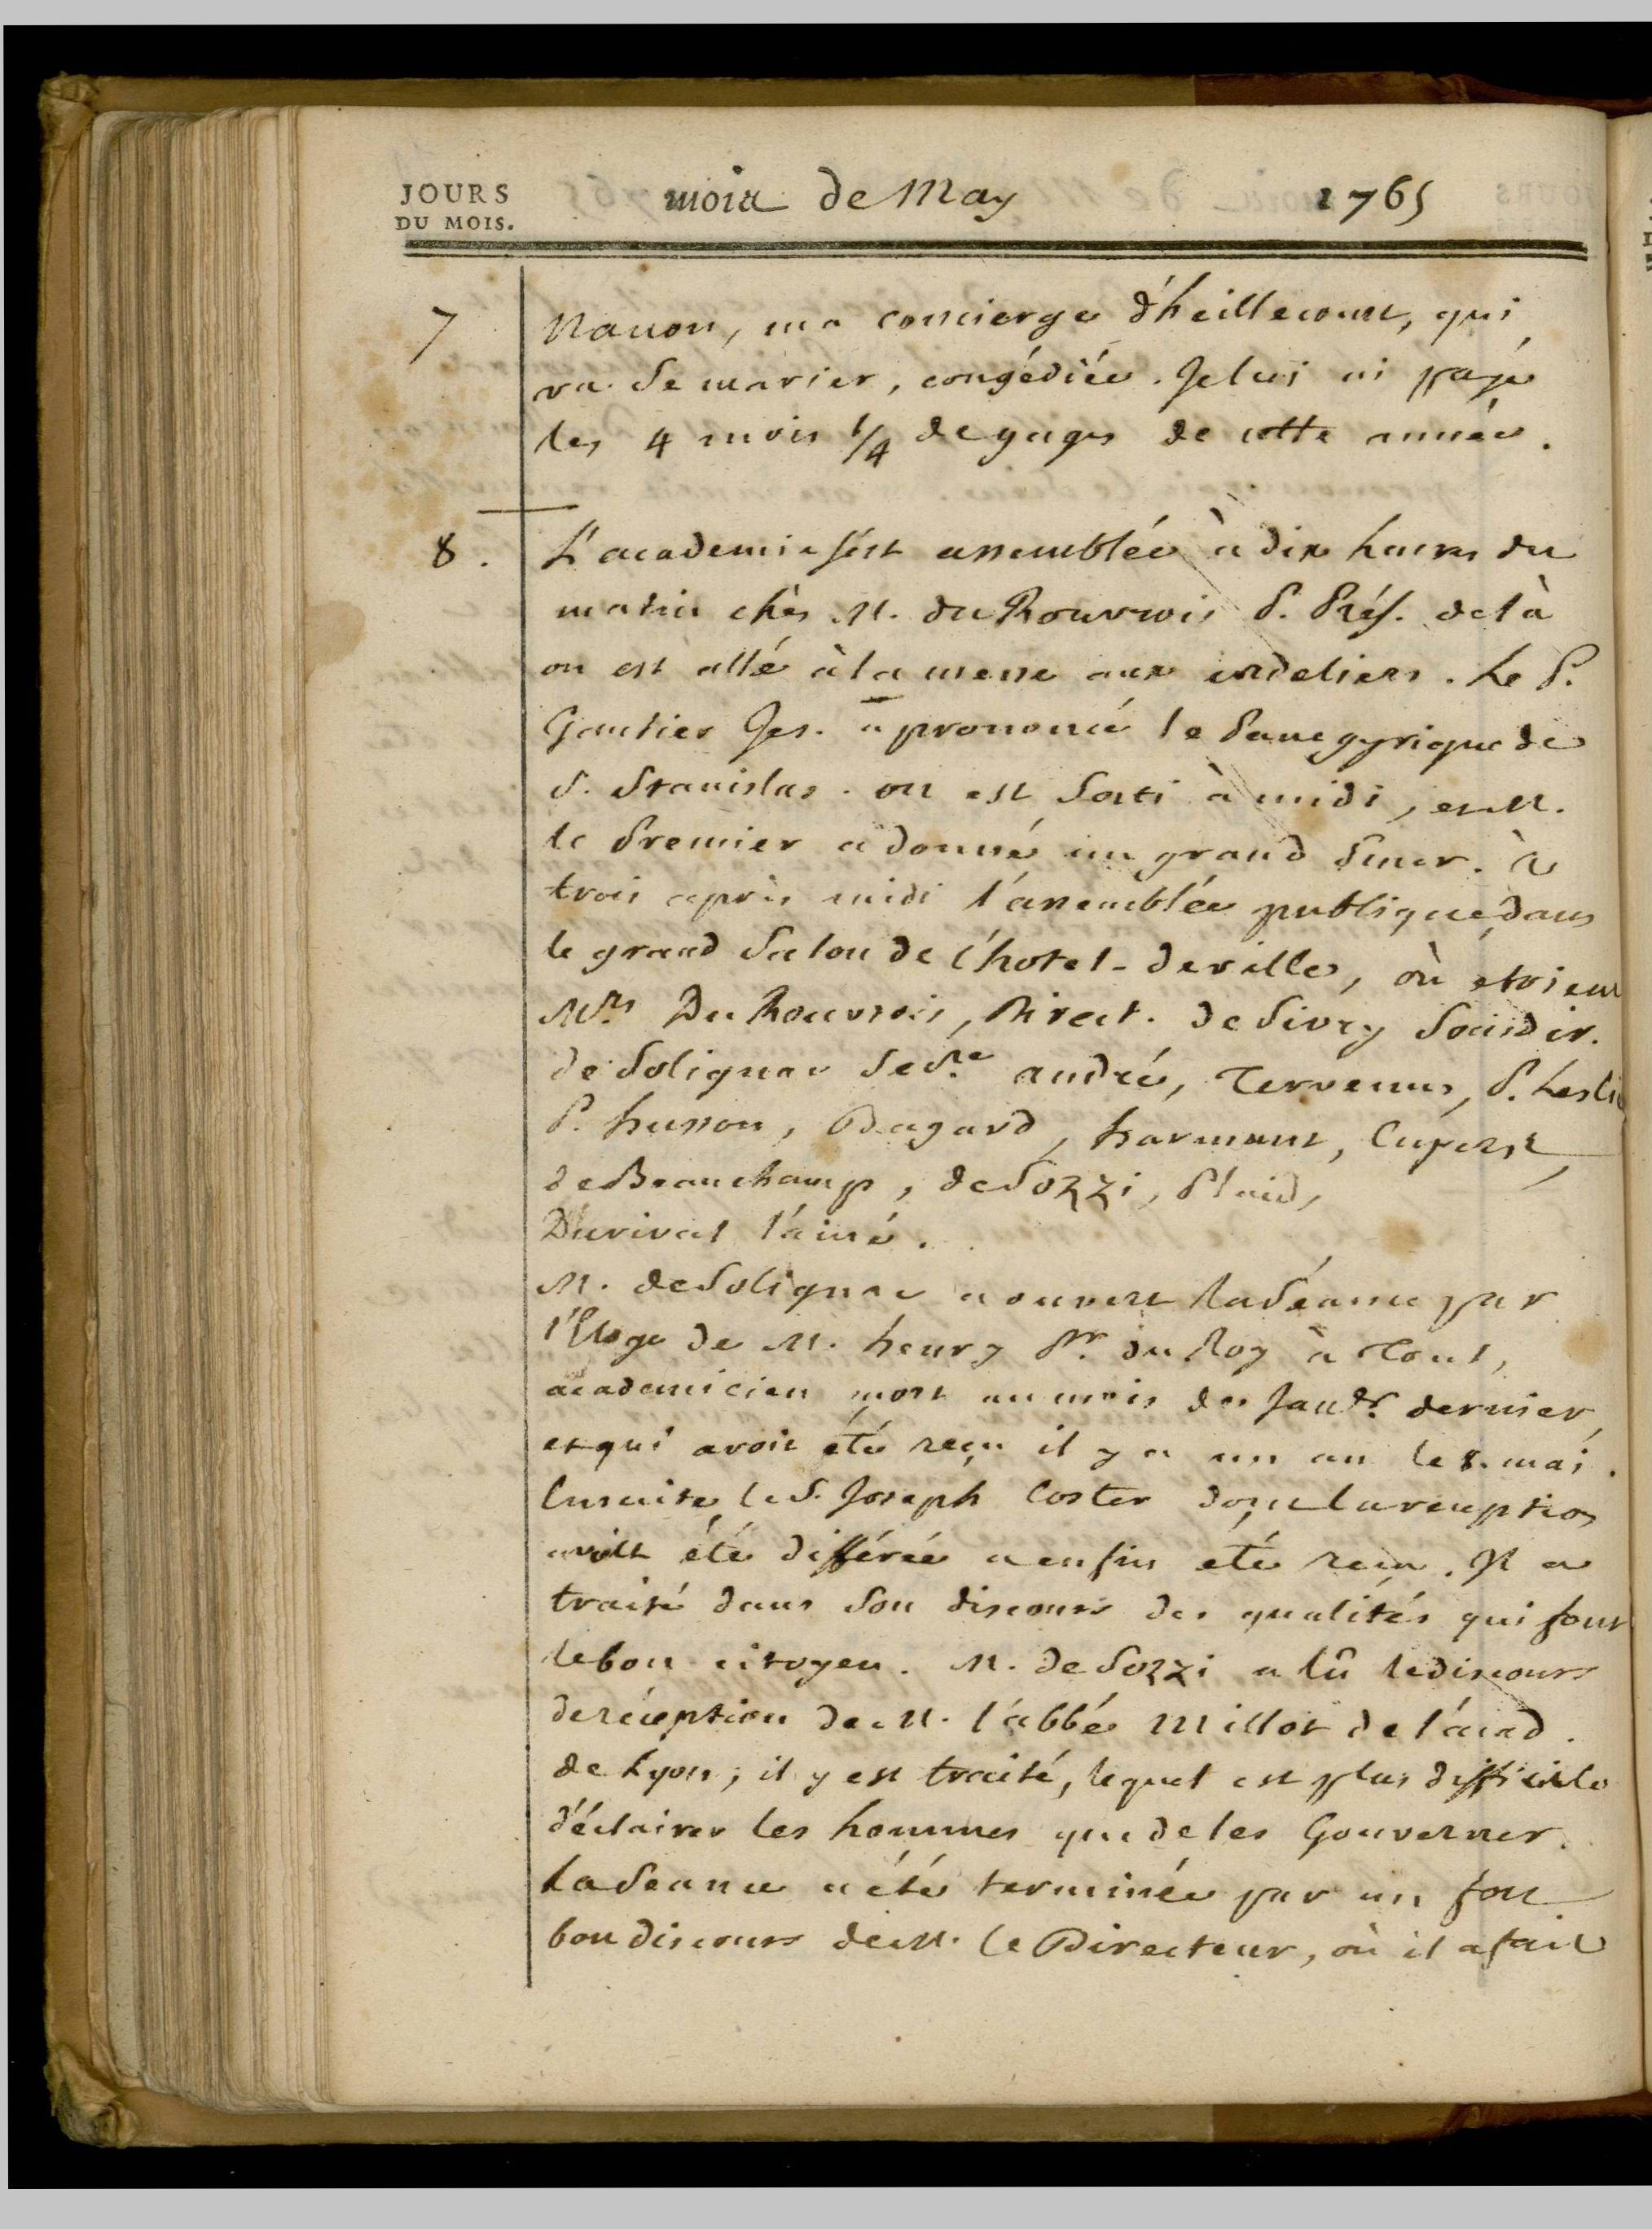 JOURS
DU MOIS.
mois de May 1765
7 Nanon, ma concierge d'heillecourt, qui
va se marier, congédiée. Je lui ai payé
les 4 mois 1/4 de gages de cette année.
8. L'academie s'est assemblée à dix heures du
matin chès M. du Rouvrois P. Prés. de là
on est allé à la messe aux cordeliers. Le P.
Gautier Jes. a prononcé le Panegyrique de
S. Stanislas. on est sorti à midi, et M.
le Premier a donné un grand diner. à
trois après midi l'assemblée publique, dans
le grand Salon de l'hotel-de ville, où étoient
Mrs Du Rouvrois, Direct. de Sivry Sousdir.
de Solignac Secre. andré, Tervenus, P. Leslie
P. husson, Bagard, harmant, Cupers,
de Beauchamp, de Sozzi, Plaid,
Durival l'ainé.
M. de Solignac a ouvert la Séance par
l'Eloge de M. henry Pr. du Roy à Toul,
academicien mort au mois de Janvr. dernier,
et qui avoit été reçu il y a un an le 8. mai.
Ensuite, le S. Joseph Coster dont la reception
avoit été différée a enfin été reçu. Il a
traité dans son discours des qualités qui font
le bon citoyen. M. de Sozzi a lû le discours
de réception de M. l'abbé Millot de l'acad.
de Lyon; il y est traité, lequel est plus difficile
d'éclairer les hommes que de les Gouverner.
La Seance a été terminée par un fort
bon discours de M. le Directeur, où il a fait